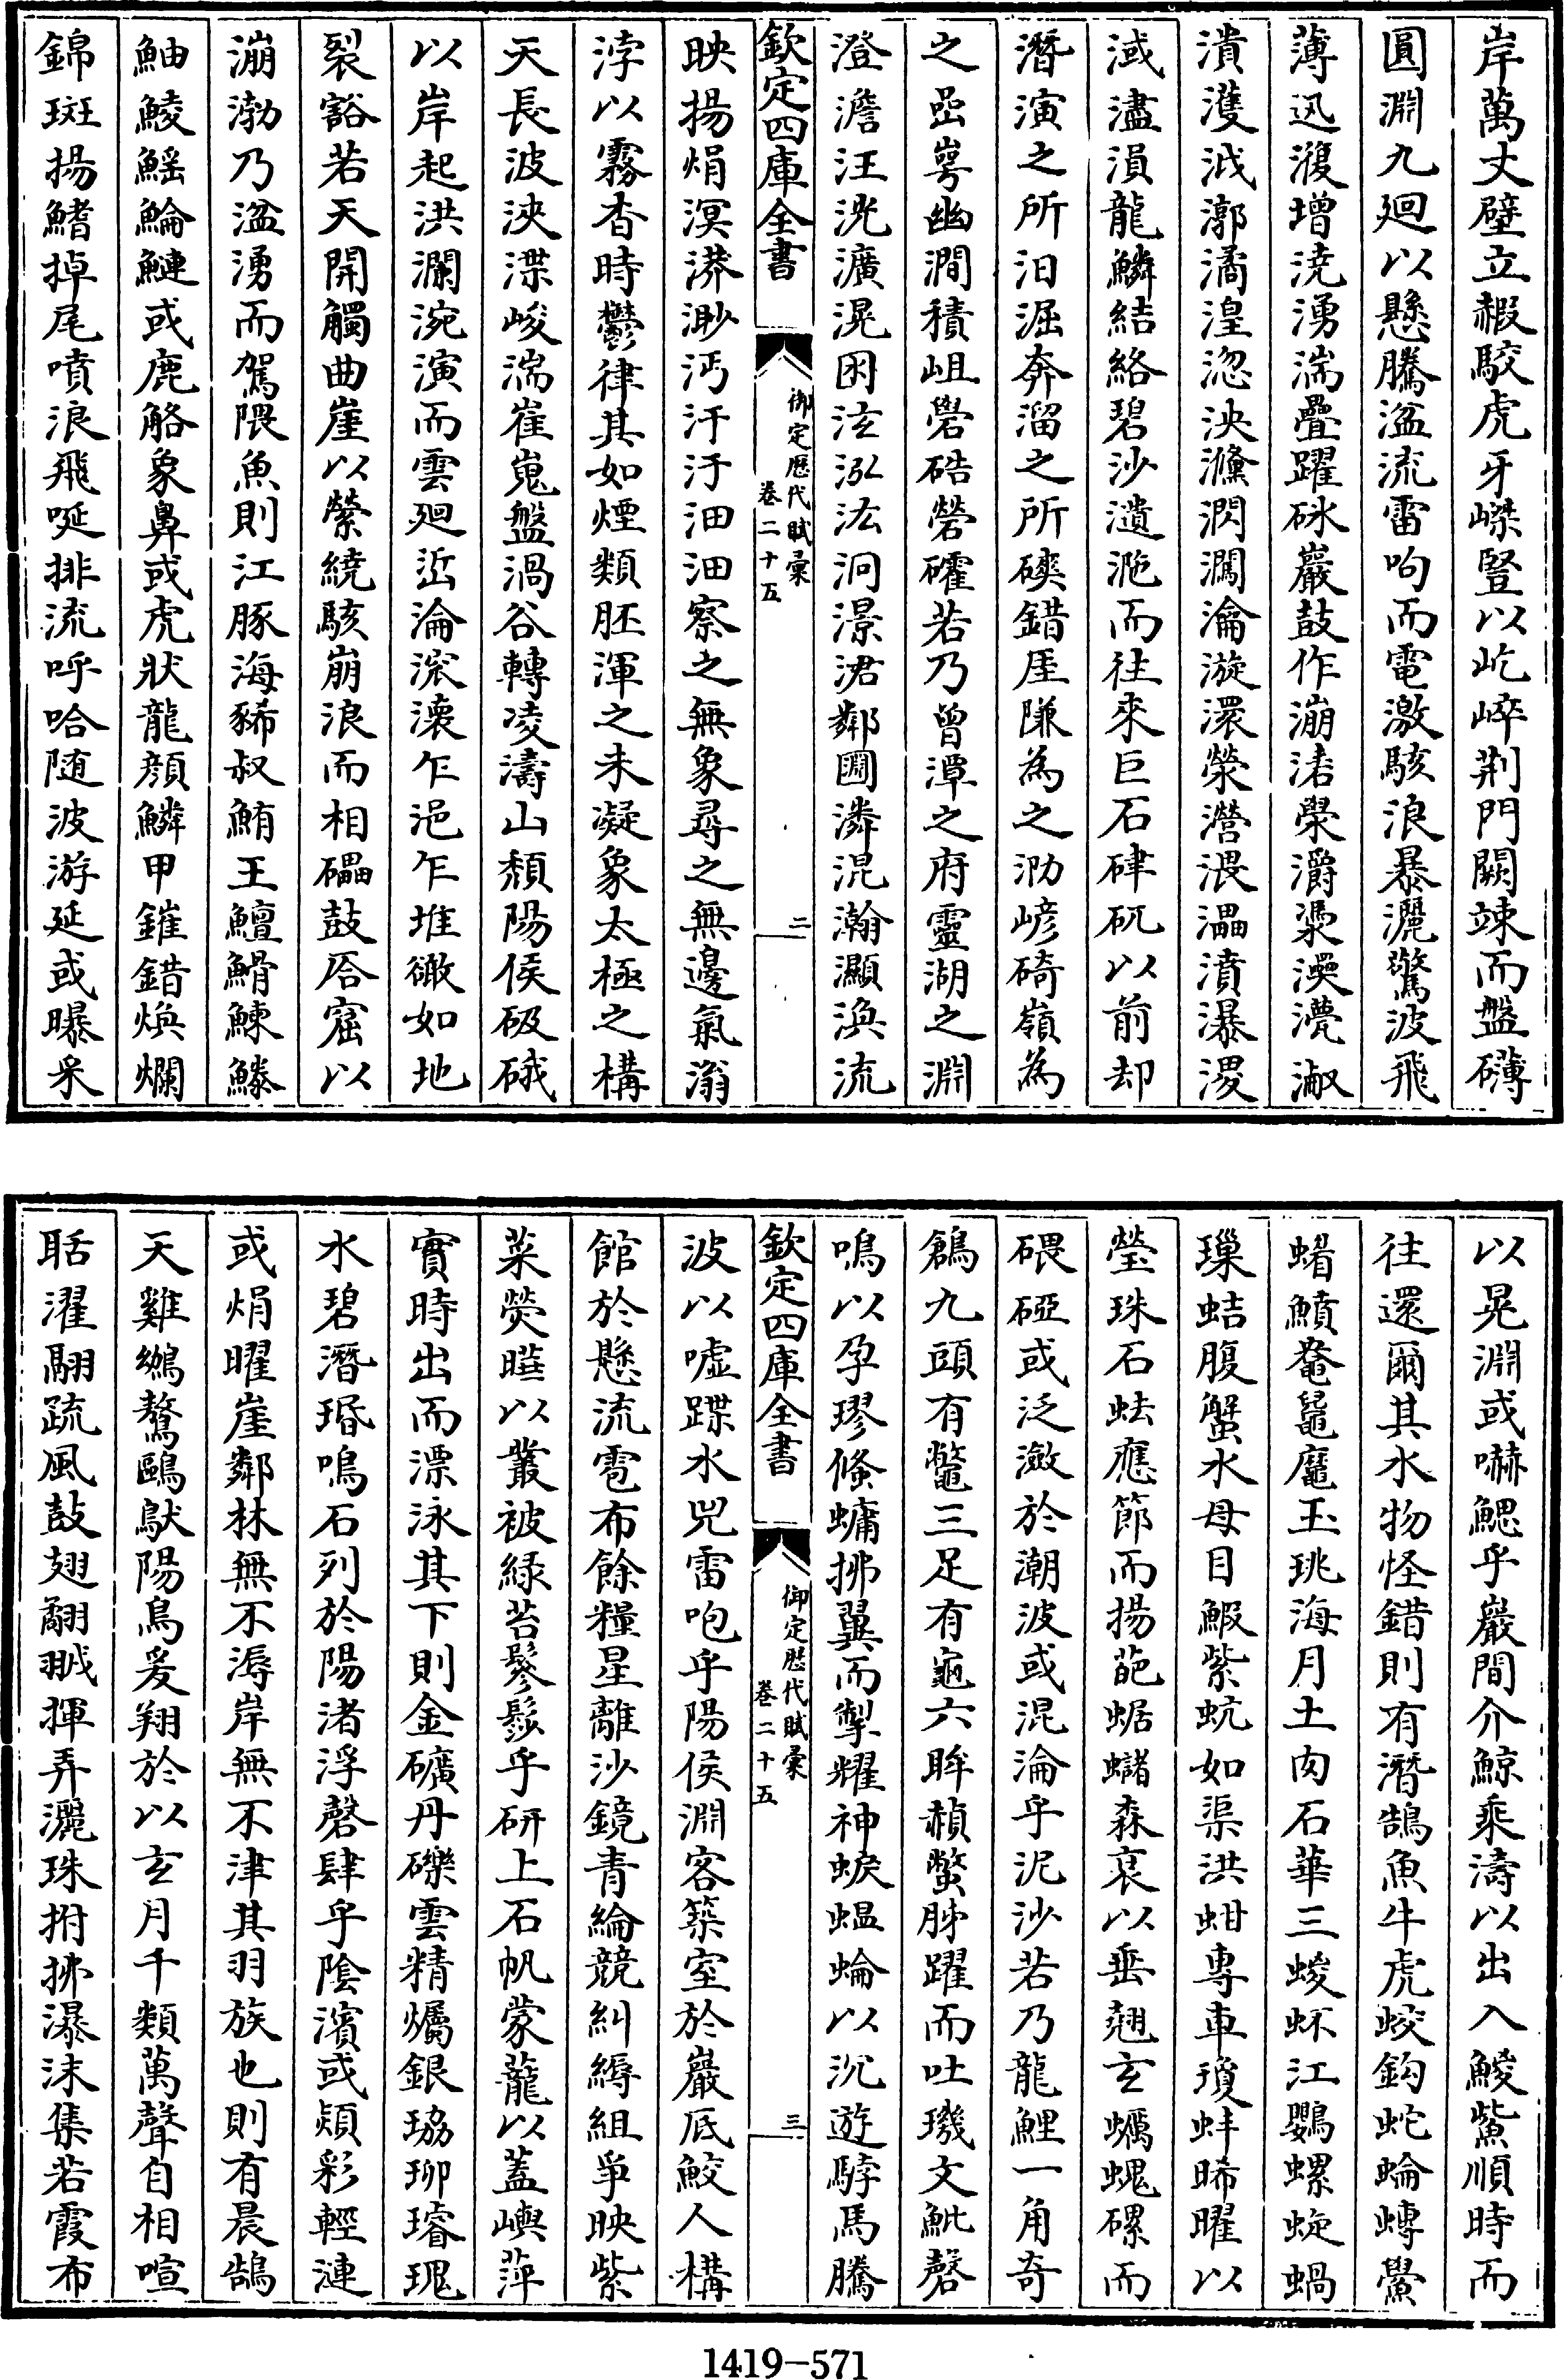 岸萬丈壁立赮駮虎牙嵥豎以屹崪荆門闕竦而盤礴
圓淵九廻以懸騰湓流雷呴而電激駭浪暴灑驚波飛
薄迅澓增澆湧湍疊躍砯巖鼓作漰湱澩灂㵗㶔灋淑
潰濩泧漷潏湟淴泱㴸潤灛瀹漩澴滎瀯渨㵽濆瀑溭
淢濜溳龍鱗結絡碧沙瀢㳌而往來巨石硉矹以前却
潛演之所汨淈奔溜之所磢錯厓隒為之泐嵃碕嶺為
之喦崿幽澗積岨礐硞礜礭若乃曾潭之府靈湖之淵
澄澹汪洸瀇滉囦泫泓汯浻澋涒鄰圝潾混瀚灝渙流
欽定四庫全書
御定歷代賦彙
卷二十五
二
映揚焆溟漭渺沔汗汙沺沺察之無象尋之無邊氣滃
浡以霧杳時鬱律其如煙類胚渾之未凝象太極之構
天長波浹渫峻湍崔嵬盤渦谷轉凌濤山頹陽侯砐硪
以岸起洪瀾涴演而雲廻㳂淪溛瀤乍浥乍堆㵙如地
裂豁若天開觸曲崖以縈繞駭崩浪而相礧鼓㕎窟以
漰渤乃湓湧而駕隈魚則江豚海狶叔鮪王鱣䱻鰊鰧
鮋鯪鰩鯩鰱或鹿觡象鼻或虎狀龍顔鱗甲鏙錯煥爛
錦斑揚鰭掉尾噴浪飛唌排流呼哈随波游延或曝采
以晃淵或嚇鰓乎巖間介鯨乘濤以出入鯼鮆順時而
往還爾其水物怪錯則有潛鵠魚牛虎蛟鈎蛇蜦蟳鱟
蝐鱝鼊鼂𪓟玉珧海月土肉石華三蝬蚢江鸚螺蜁蝸
璅蛣腹蟹水母目鰕紫蚢如渠洪蚶專車瓊蚌晞曜以
瑩珠石蚨應節而揚葩蜛蝫森衰以垂翹玄蠣磈磥而
碨硪或泛瀲於潮波或混淪乎泥沙若乃龍鯉一角奇
鶬九頭有鼈三足有龜六眸赬蟞胏躍而吐璣文魮磬
鳴以孕璆𢕐蠩拂翼而掣耀神蜧蝹蜦以沉遊騂馬騰
欽定四庫全書
御定歷代賦彙
卷二十五
三
波以噓蹀水兕雷咆乎陽侯淵客築室於巖底鮫人構
館於懸流雹布餘糧星離沙鏡青綸競糾縟組爭映紫
菜熒曄以叢被緑苔鬖髿乎研上石帆蒙蘢以蓋嶼萍
實時出而漂泳其下則金礦丹礫雲精爥銀珕珋璿瑰
水碧潛琘鳴石列於陽渚浮磬肆乎陰濱或熲彩輕漣
或焆曜崖鄰林無不溽岸無不津其羽族也則有晨鵠
天雞鴢鶩鷗䲦陽鳥爰翔於以玄月千類萬聲自相喧
聒濯翮疏風鼓翅翻翍揮弄灑珠拊拂瀑沫集若霞布
1419-571